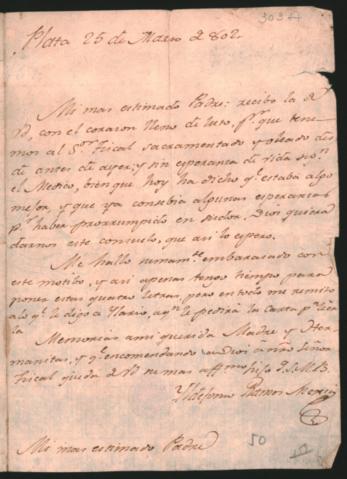 303
Plata 25 de Marzo de 802.
Mi mas estimado Padre: recibo la de
Vd. con el corazon lleno de luto, pr. que tene-
mos al Sor. Fiscal sacramentado y oleado des-
de antes de ayer, y sin esperanza de vida segn.
el Medico, bien que hoy ha dicho qe. estaba algo
mejor, y que ya concebia algunas esperanzas
pr. haber prorrumpido en sudor. Dios quiera
darnos este consuelo, que asi lo espero.
Me hallo sumamte. embarasado con
este motibo, y asi apenas tengo tiempo para
poner estas quatro letras, pero en todo me remito
a lo qe. le digo a Ylario, a qn. le pedirá la carta pa. leer-
la
Memorias a mi querida Madre y Her-
manitas, y qe. encomendando a Dios a nro. Señor
Fiscal queda de Vd. su mas affmo. hijo Q.S.M.B.
Yldefonso Ramos Mexia
Mi mas estimado Padre
50